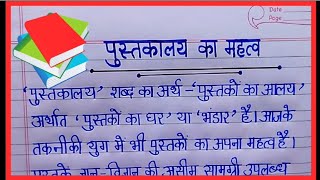 Date
Page
पुस्तकालय का महत्व
'पुस्तकालय' शब्द का अर्थ -'पुस्तकों का आलय'
अर्थात 'पुस्तकों का घर' या 'भंडार' है। आजके
तकनीकी युग में भी पुस्तकों का अपना महत्व है।
पुस्तके ज्ञान-विज्ञान की असीम सामग्री उपलब्ध